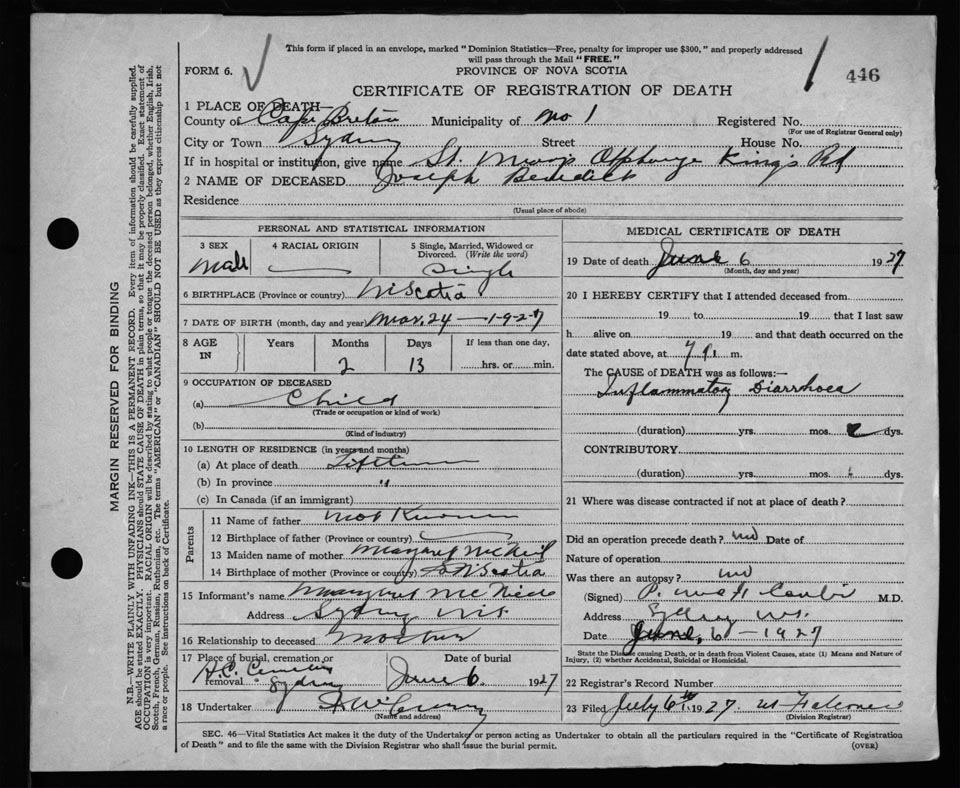 This form if placed in an envelope, marked "Dominion Statistics—Free, penalty for improper use $300," and properly addressed
will pass through the Mail "FREE."
FORM 6.
PROVINCE OF NOVA SCOTIA
446
CERTIFICATE OF REGISTRATION OF DEATH
1 PLACE OF DEATH—
County of Cape Breton Municipality of No 1 Registered No.
(For use of Registrar General only)
City or Town Sydney Street House No.
If in hospital or institution, give name St. Mary's Orphange King's Rd
2 NAME OF DECEASED Joseph Benedick
Residence
(Usual place of abode)
PERSONAL AND STATISTICAL INFORMATION
3 SEX 4 RACIAL ORIGIN 5 Single, Married, Widowed or
Divorced. (Write the word)
Male Single
6 BIRTHPLACE (Province or country) N Scotia
7 DATE OF BIRTH (month, day and year) Mar. 24 — 1927
8 AGE IN Years Months Days If less than one day,
2 13 hrs. or min.
9 OCCUPATION OF DECEASED
(a) Child
(Trade or occupation or kind of work)
(b)
(Kind of industry)
10 LENGTH OF RESIDENCE (in years and months)
(a) At place of death Lifetime
(b) In province "
(c) In Canada (if an immigrant)
Parents
11 Name of father Not Known
12 Birthplace of father (Province or country)
13 Maiden name of mother Margaret McNeil
14 Birthplace of mother (Province or country) N Scotia
15 Informant's name Margaret McNeil
Address Sydney N.S.
16 Relationship to deceased Mother
17 Place of burial, cremation or removal Date of burial
R.C. Cemetery
Sydney June 6. 1927
18 Undertaker
(Name and address)
MEDICAL CERTIFICATE OF DEATH
19 Date of death June 6 1927
(Month, day and year)
20 I HEREBY CERTIFY that I attended deceased from
19 to 19 that I last saw
h alive on 19 and that death occurred on
date stated above, at m.
The CAUSE of DEATH was as follows:—
Inflammatory Diarrhoea
(duration) yrs. mos. 2 dys.
CONTRIBUTORY
(duration) yrs. mos. dys.
21 Where was disease contracted if not at place of death?
Did an operation precede death? no Date of
Nature of operation
Was there an autopsy? no
(Signed) M.D.
Address Sydney N.S.
Date June, 6 - 1927
State the Disease causing Death, or in death from Violent Causes, state (1) Means and Nature of
Injury, (2) whether Accidental, Suicidal or Homicidal.
22 Registrar's Record Number
23 Filed July 6th 1927
(Division Registrar)
SEC. 46—Vital Statistics Act makes it the duty of the Undertaker or person acting as Undertaker to obtain all the particulars required in the "Certificate of Registration
of Death" and to file the same with the Division Registrar who shall issue the burial permit.
(OVER)
MARGIN RESERVED FOR BINDING
N.B.—WRITE PLAINLY WITH UNFADING INK—THIS IS A PERMANENT RECORD. Every item of information should be carefully supplied.
AGE should be stated EXACTLY. PHYSICIANS should STATE CAUSE OF DEATH in plain terms, so that it may be properly classified. Exact statement of
OCCUPATION is very important. RACIAL ORIGIN will be described by stating to what people or tongue the deceased person belonged, whether English, Irish,
Scotch, French, German, Russian, Ruthenian, etc. The terms "AMERICAN" or "CANADIAN" SHOULD NOT BE USED as they express citizenship but not
a race or people. See instructions on back of Certificate.